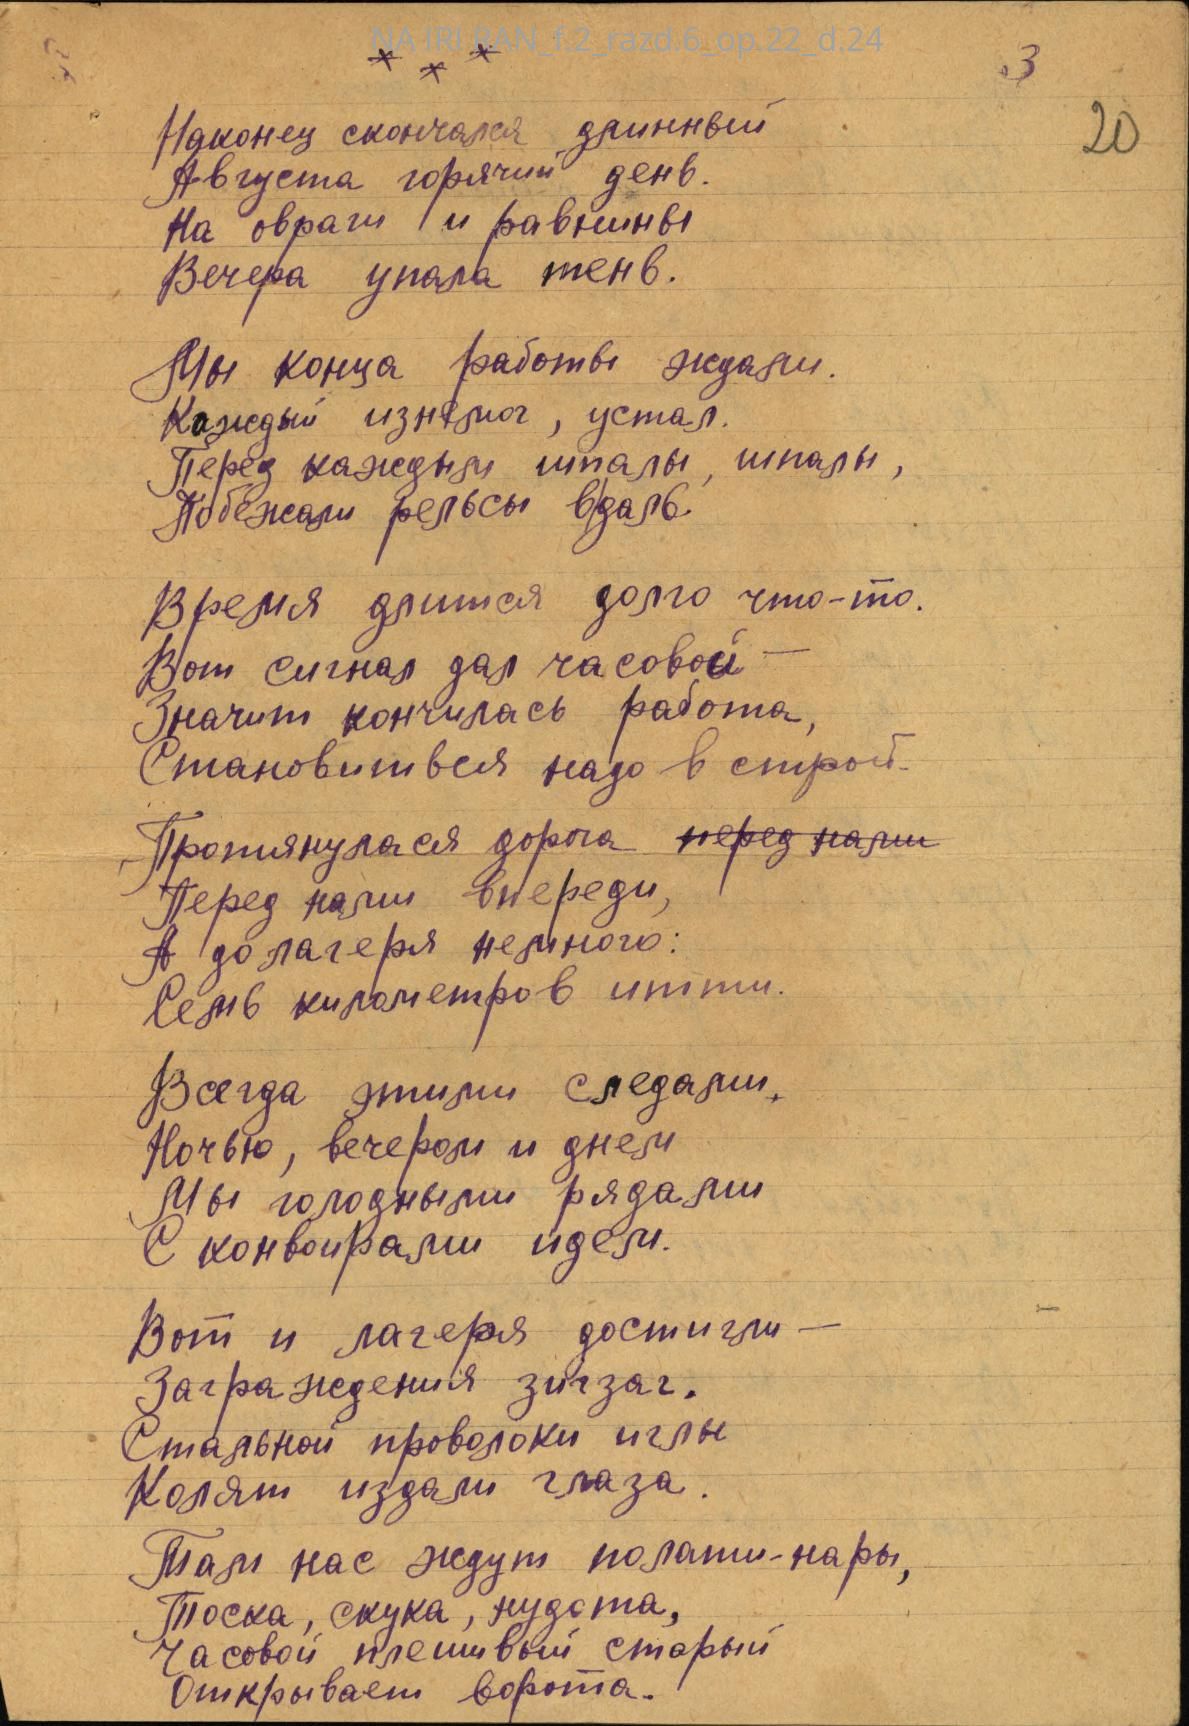 NA IRI RAN_f.2_razd.6_op.22_d.24
* * *
3
20
Наконец скончался длинный
Августа горячий день.
На овраги и равнины
Вечера упала тень.
Мы конца работы ждали.
Каждый изнемог, устал.
Перед каждым шпалы, шпалы,
Побежали рельсы вдаль.
Время длится долго что-то.
Вот сигнал дал часовой —
Значит кончилась работа,
Становиться надо в строй.
Протянулася дорога перед нами
Перед нами впереди,
А до лагеря немного:
Семь километров итти.
Всегда этими следами,
Ночью, вечером и днем
Мы голодными рядами
С конвоирами идем.
Вот и лагеря достигли —
Заграждения зигзаг.
Стальной проволоки иглы
Колят издали глаза.
Там нас ждут полати-нары,
Тоска, скука, нудота,
Часовой плешивый старый
Открывает ворота.